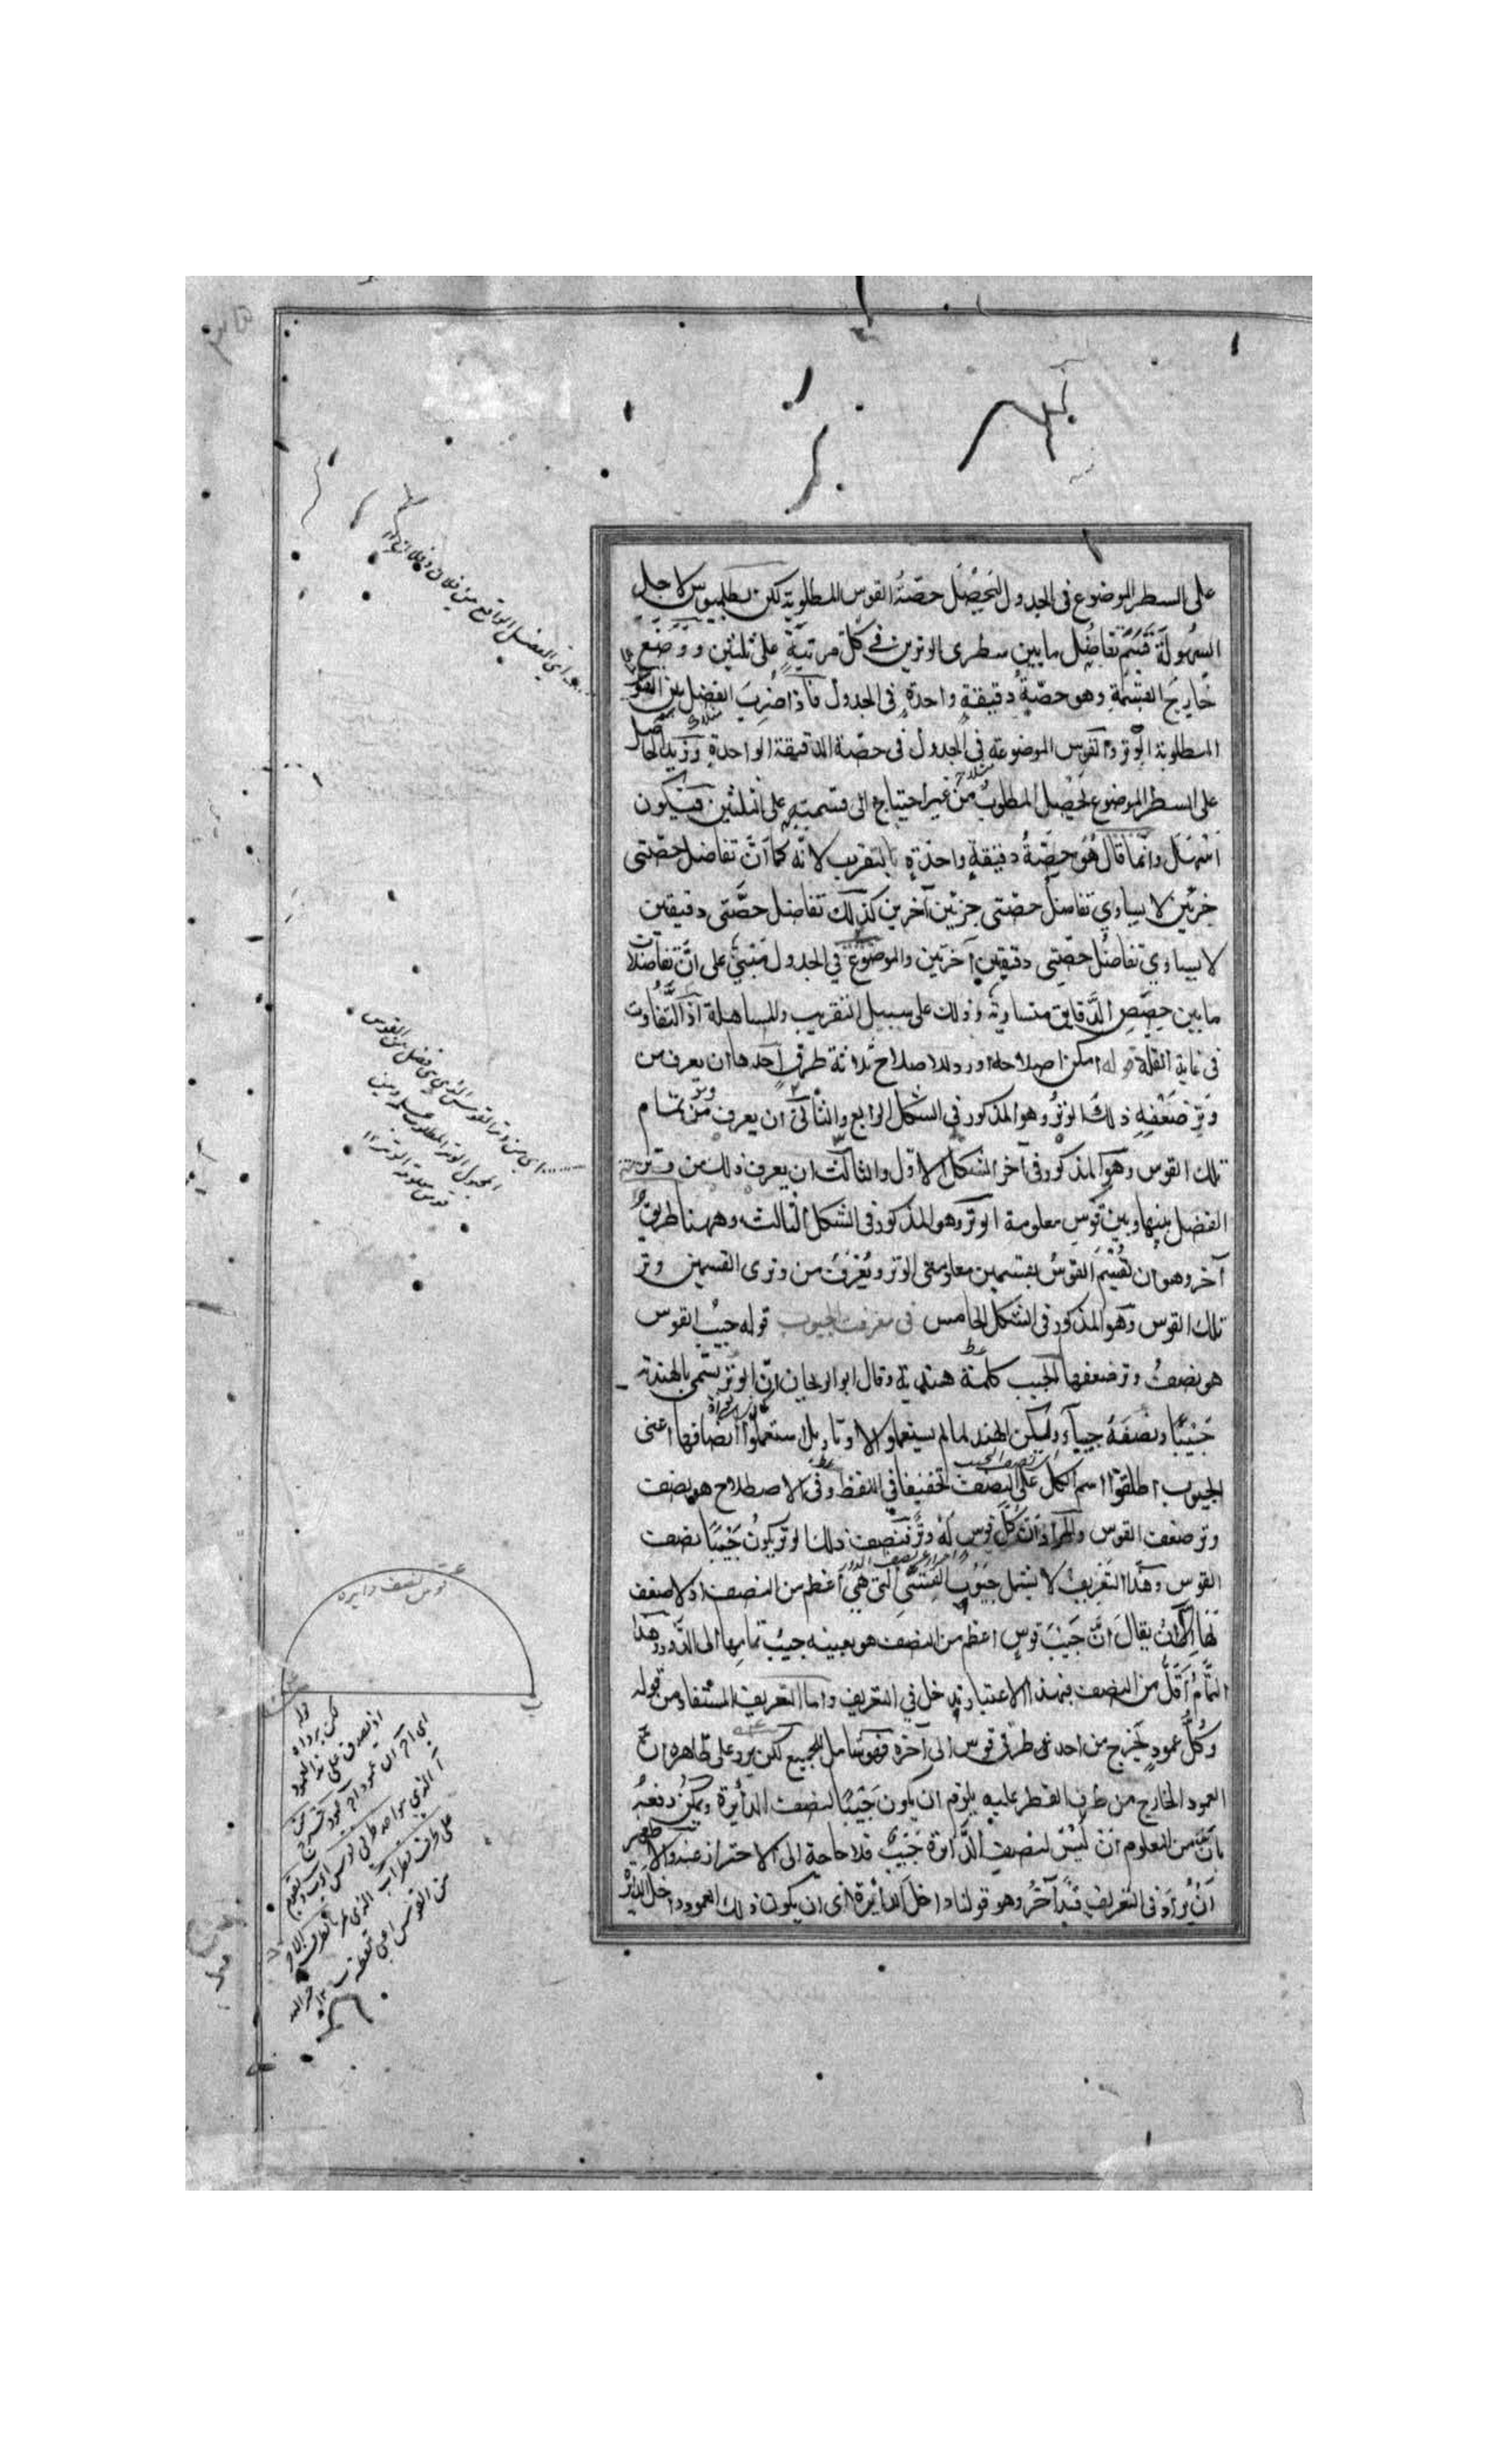 على السطر الموضوع فى الجدول ليَحْصُلَ حصّةُ القوس المطلوبة لكن بطلميوس لاجل
السهولة قَسَمَ تفاضُل ما بين سطرى الوترين فى كل مرتبةٍ على ثلثين ووَضَع
خارجَ القسمة وهو حصّة دقيقةٍ واحدةٍ فى الجدول فاذا ضُرِبَ الفضل بين القوس
المطلوبة الوتر والقوس الموضوعة فى الجدول فى حصّة الدقيقة الواحدة وزيد الحاصل
على السطر الموضوع لحصل المطلوبُ من غير احتياج الى قسمته على ثلثين فيكون
اسْهَل وانّما قال هُوَ حصّةُ دقيقةٍ واحدَةٍ بالتقريب لانّه كما انّ تفاضل حصّتى
جزئين لا يساوي تفاضلُ حصّتى جزئين آخرين كذلك تفاضل حصَّتى دقيقتين
لا يساوي تفاضُل حصّتى دقيقتين آخرتين والموضوعُ في الجدول مبنيّ على انّ تفاضلات
ما بين حِصَصِ الدّقايق متساوية وذلك على سبيل التقريب والمساهلة اذ التَّفَاوت
فى غاية القلة قوله امكن اصلاحه اورد للاصلاح ثلاثة طرقٍ احدها ان يعرف من
وَترِ ضَعْفِهِ ذلك الوترُ وهو المذكور فى الشكل الرابع والثانى ان يعرف من وتر تمام
تلك القوس وهو المذكور فى آخر الشكل الاوّل والثالث ان يعرف ذلك من وتر
الفضل بينها وبين قوسٍ معلومة الوتر وهو المذكور فى الشكل الثالث وههنا طريقٌ
آخر وهو ان تُقْسَمَ القوسُ بقسمين معلومتى الوتر ويُعْرَفَ من وترى القسمين وتر
تلك القوس وهو المذكور فى الشكل الخامس فى معرفة الجيوب قوله جيبُ القوس
هو نصفُ وتر ضعفها الجيب كلمة هندية وقال ابو الريحان انّ الوتر يسَمّى بالهندية
جَيْبًا ونصفَهُ جيبآء وليكن الهند لما لم يستعملوا الاوتار بل استعملوا انصافها اعنى
الجيوب اطلقوا اسم الكل على النصف تخفيفا فى اللفظ وفى الاصطلاح هو نصف
وتر ضعف القوس والمراد انّ كُلّ قوسٍ لَهُ وترٌ فنصف ذلك الوتر يكونُ جَيْبًا لنصف
القوس وهَذا التعريفُ لا يشمل جُيُوب القِسِىّ التى هىَ اعظم من النصف اذ لا ضعف
لها الا ان يقالَ انَّ جَيْبَ قوسٍ اعظم من النصف هو بعينه جيبُ تمامِها الى الدَّور وهَذا
التّمامُ اقَلُّ من النصف فبهذا الاعتبار يدخل فى التعريف واما التعريف المستفاد من قوله
وكُلُّ عمودٍ يَخرج من احد طرفى قوس الى آخره فهو شامل للجميع لكن يرد على ظاهره انّ
العمود الخارج من طرف القطر عليه يلزم ان يكون جَيْبًا لنصف الدائرة ويمكنُ دفعُهُ
بانّ من المعلوم ان ليْسَ لنصف الدَّائرة جَيْبٌ فلا حاجة الى الاحتراز عنه والاظهر
اَنْ يُزادَ فى التعريف قيدٌ آخَرُ وهو قولنا داخلَ الدائرة اى ان يكون ذلك العمود داخل الدائرة
اى الفضل الواقع بين
اى من وتر القوس الذى هى فضل بين القوس
المجهول الوتر المطلوب وبين
قوس معلومة الوتر ١٢
قوس نصف دايره
ب